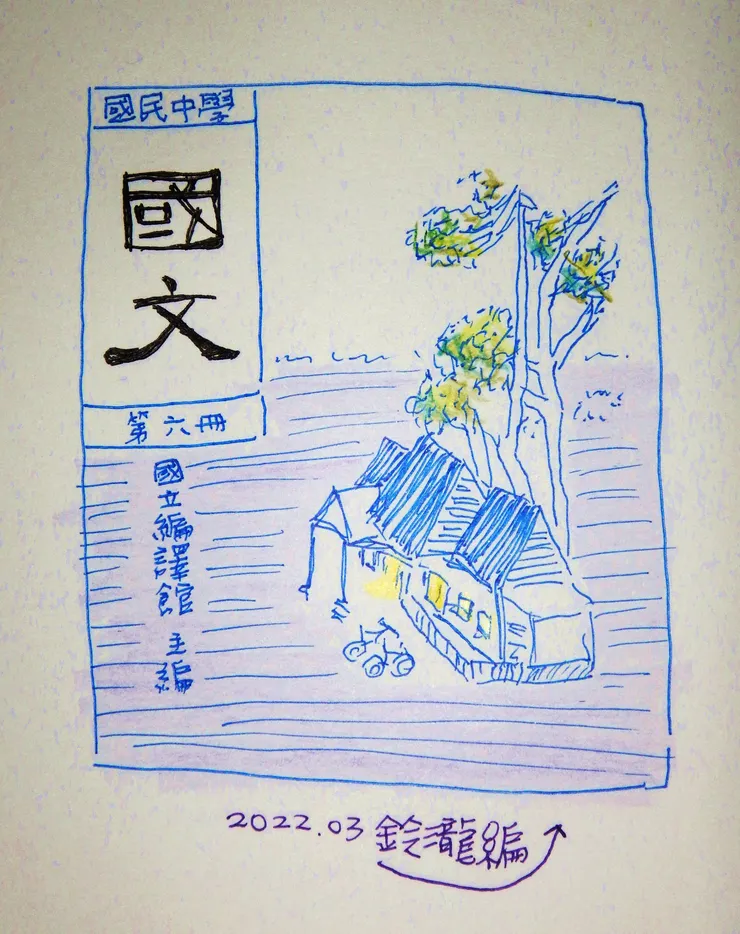 國民中學
國文
第六冊
國立編譯館 主編
2022.03 鈴瀧編